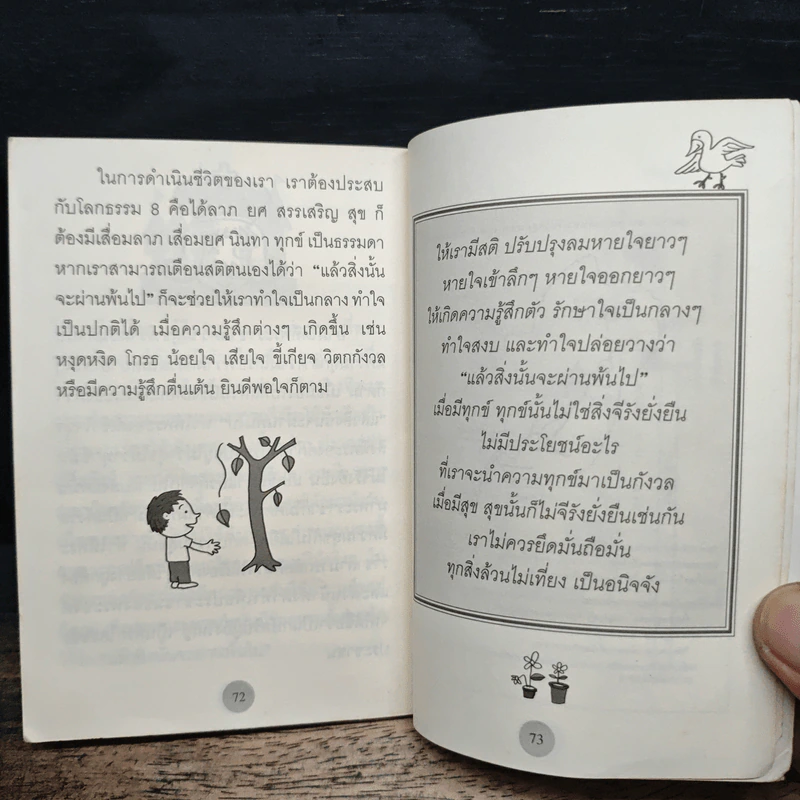 ในการดำเนินชีวิตของเรา เราต้องประสบ
กับโลกธรรม 8 คือได้ลาภ ยศ สรรเสริญ สุข ก็
ต้องมีเสื่อมลาภ เสื่อมยศ นินทา ทุกข์ เป็นธรรมดา
หากเราสามารถเตือนสติตนเองได้ว่า “แล้วสิ่งนั้น
จะผ่านพ้นไป” ก็จะช่วยให้เราทำใจเป็นกลาง ทำใจ
เป็นปกติได้ เมื่อความรู้สึกต่างๆ เกิดขึ้น เช่น
หงุดหงิด โกรธ น้อยใจ เสียใจ ขี้เกียจ วิตกกังวล
หรือมีความรู้สึกตื่นเต้น ยินดีพอใจก็ตาม
72
ให้เรามีสติ ปรับปรุงลมหายใจยาวๆ
หายใจเข้าลึกๆ หายใจออกยาวๆ
ให้เกิดความรู้สึกตัว รักษาใจเป็นกลางๆ
ทำใจสงบ และทำใจปล่อยวางว่า
“แล้วสิ่งนั้นจะผ่านพ้นไป”
เมื่อมีทุกข์ ทุกข์นั้นไม่ใช่สิ่งจีรังยั่งยืน
ไม่มีประโยชน์อะไร
ที่เราจะนำความทุกข์มาเป็นกังวล
เมื่อมีสุข สุขนั้นก็ไม่จีรังยั่งยืนเช่นกัน
เราไม่ควรยึดมั่นถือมั่น
ทุกสิ่งล้วนไม่เที่ยง เป็นอนิจจัง
73